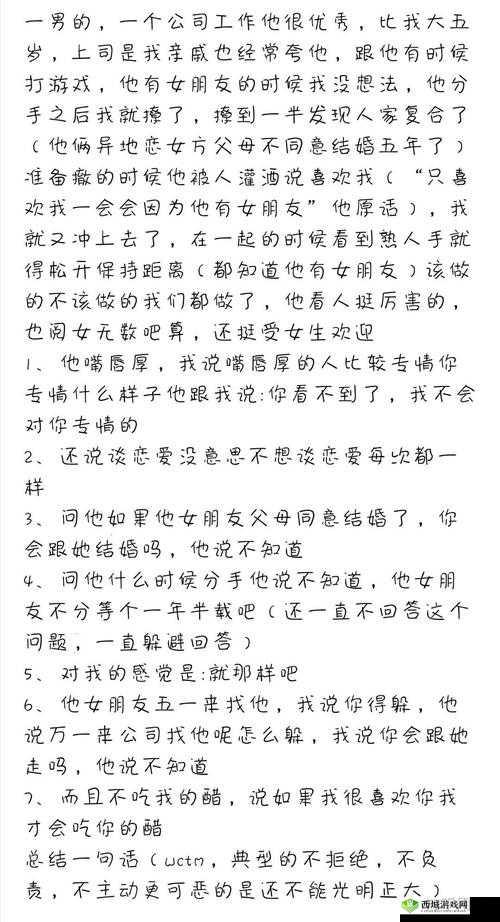 一男的，一个公司工作他很优秀，比我大五
岁，上司是我亲戚也经常夸他，跟他有时侯
打游戏，他有女朋友的时侯我没想法，他分
手之后我就撩了，撩到一半发现人家复合了
（他俩异地恋女方父母不同意结婚五年了）
准备撤的时侯他被人灌酒说喜欢我（“只喜
欢我一会会因为他有女朋友”他原话），我
就又冲上去了，在一起的时侯看到熟人手就
得松开保持距离（都知道他有女朋友）该做
的不该做的我们都做了，他看人挺厉害的，
也阅女无数吧算，还挺受女生欢迎
1、他嘴唇厚，我说嘴唇厚的人比较专情你
专情什么样子他跟我说:你看不到了，我不会
对你专情的
2、还说谈恋爱没意思不想谈恋爱每次都一
样
3、问他如果他女朋友父母同意结婚了，你
会跟她结婚吗，他说不知道
4、问他什么时侯分手他说不知道，他女朋
友不分等个一年半载吧（还一直不回答这个
问题，一直躲避回答）
5、对我的感觉是:就那样吧
6、他女朋友五一来找他，我说你得躲，他
说万一来公司找他呢怎么躲，我说你会跟她
走吗，他说不知道
7、而且不吃我的醋，说如果我很喜欢你我
才会吃你的醋
总结一句话（wctm，典型的不拒绝，不负
责，不主动更可恶的是还不能光明正大）
西城游戏网